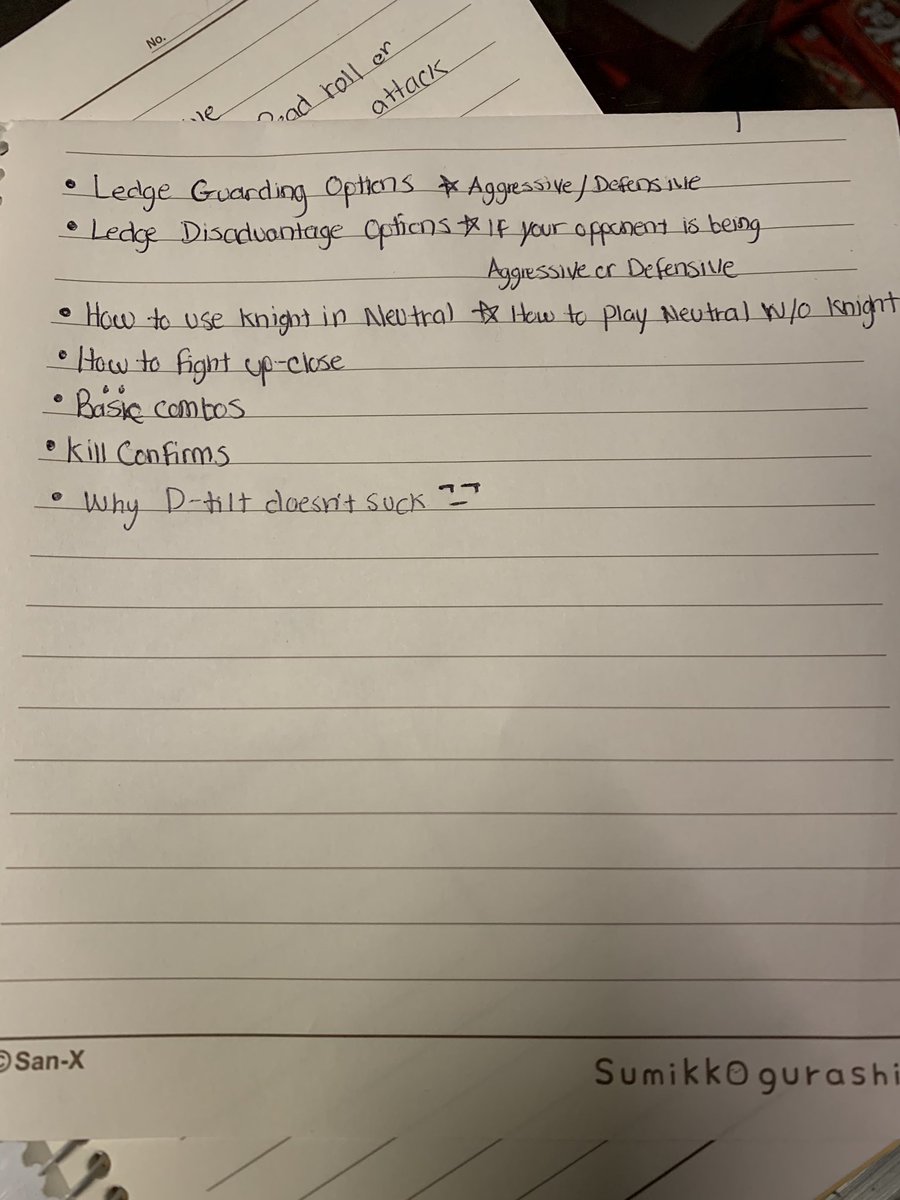 No.
roll or
attack
• Ledge Guarding Options ☆ Aggressive/Defensive
• Ledge Disadvantage Options ☆ If your opponent is being
Aggressive or Defensive
• How to use Knight in Neutral ☆ How to Play Neutral W/o Knight
• How to fight up-close
• Basic combos
• Kill Confirms
• Why D-tilt doesn't suck
©San-X
Sumikkogurashi